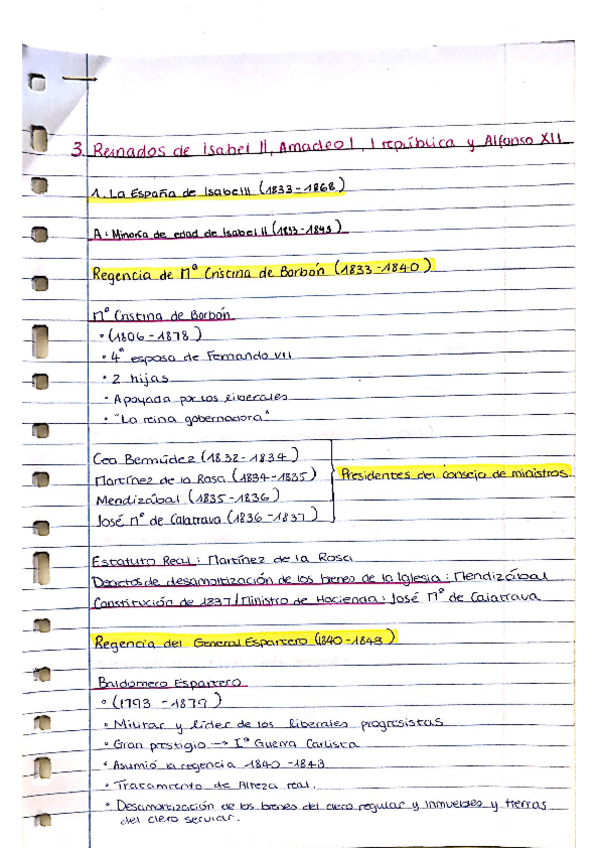 3. Reinados de Isabel II, Amadeo I, I república y Alfonso XII
1. La España de Isabel II (1833-1868)
A: Minoría de edad de Isabel II (1833-1843)
Regencia de Mª Cristina de Borbón (1833-1840)
Mª Cristina de Borbón
• (1806-1878)
• 4ª esposa de Fernando VII
• 2 hijas
• Apoyada por los liberales
• "La reina gobernadora"
Cea Bermúdez (1832-1834)
Martínez de la Rosa (1834-1835)
Mendizábal (1835-1836)
José Mº de Calatrava (1836-1837)
Presidentes del consejo de ministros
Estatuto Real: Martínez de la Rosa
Decretos de desamortización de los bienes de la Iglesia: Mendizábal
Constitución de 1837/Ministro de Hacienda: José Mª de Calatrava
Regencia del General Espartero (1840-1843)
Baldomero Espartero
• (1793-1879)
• Militar y líder de los liberales progresistas
• Gran prestigio → Iª Guerra Carlista
• Asumió la regencia 1840-1843
• Tratamiento de Alteza real.
• Desamortización de los bienes del clero regular y inmuebles y tierras
del clero secular.